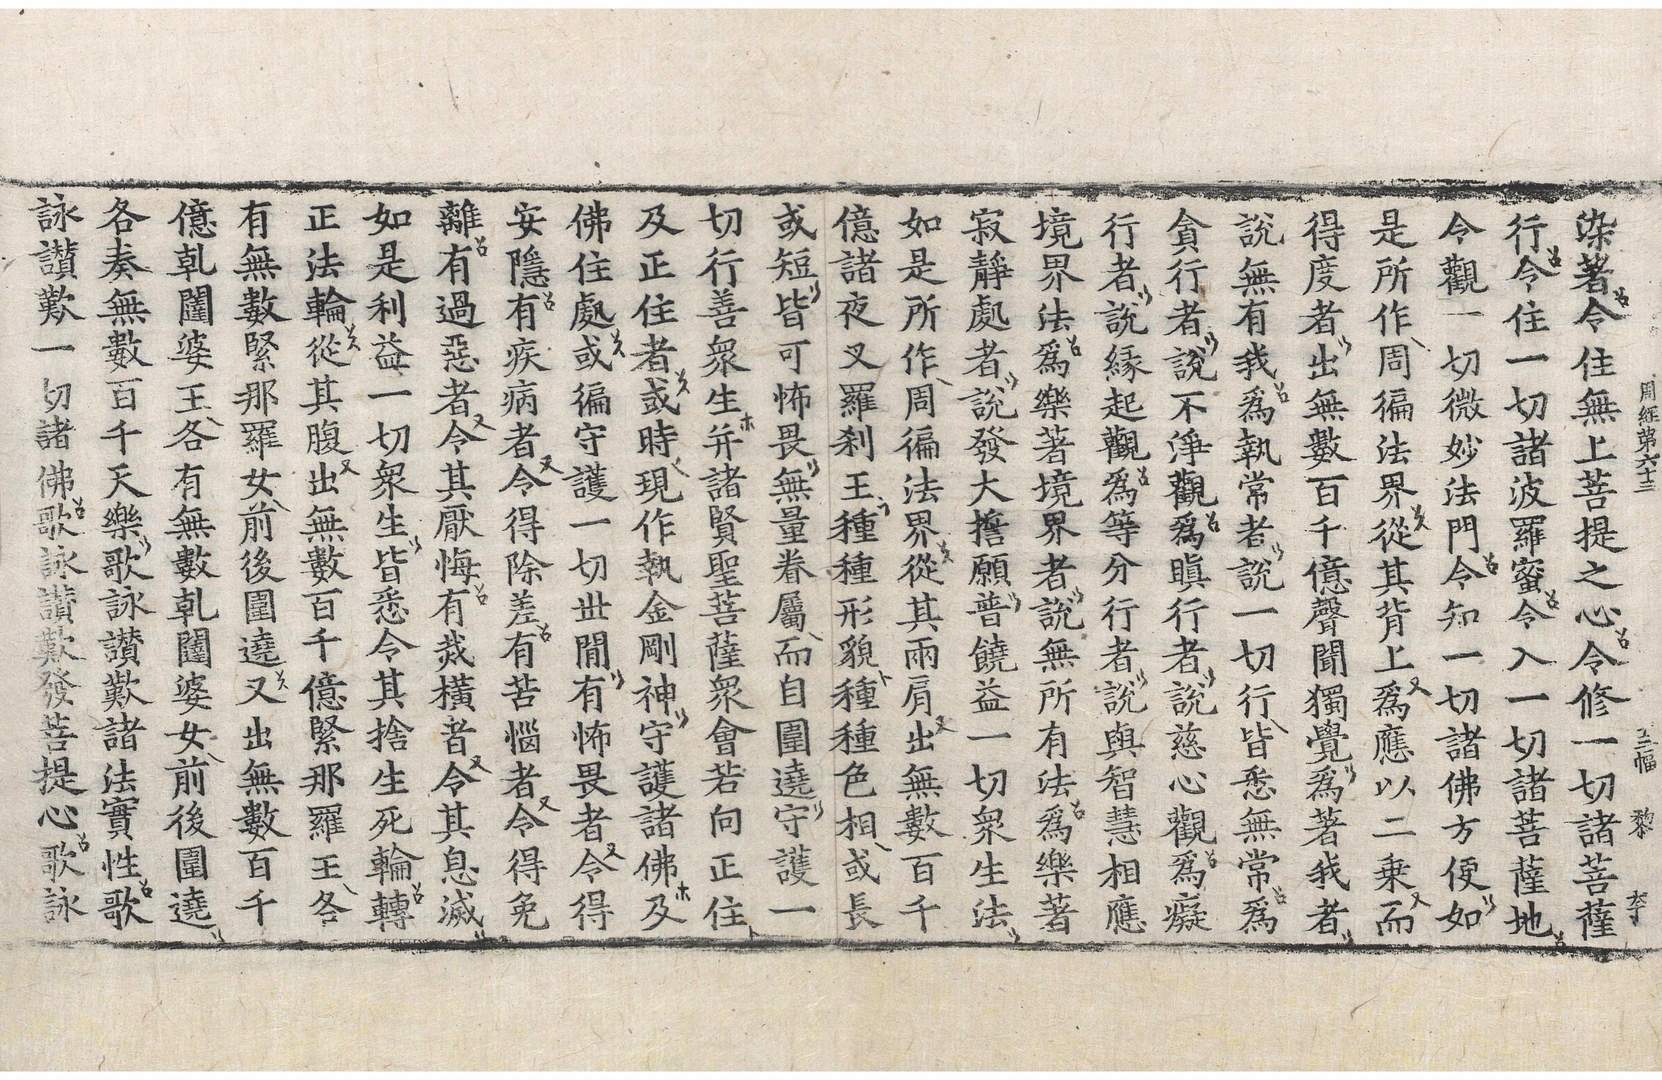 周經第六十三 三幅 黎 李
染著令住無上菩提之心令修一切諸菩薩
行令住一切諸波羅蜜令入一切諸菩薩地
令觀一切微妙法門令知一切諸佛方便如
是所作周徧法界從其背上爲應以二乗而
得度者出無數百千億聲聞獨覺爲著我者
說無有我爲執常者說一切行皆悉無常爲
貪行者說不淨觀爲瞋行者說慈心觀爲癡
行者說緣起觀爲等分行者說與智慧相應
境界法爲樂著境界者說無所有法爲樂著
寂靜處者說發大擔願普饒益一切衆生法
如是所作周徧法界從其兩肩出無數百千
億諸夜叉羅刹王種種形貌種種色相或長
或短皆可怖畏無量眷屬而自圍遶守護一
切行善衆生并諸賢聖菩薩衆會若向正住
及正住者或時現作執金剛神守護諸佛及
佛住處或徧守護一切世閒有怖畏者令得
安隱有疾病者令得除差有苦惱者令得免
離有過惡者令其厭悔有烖橫者令其息滅
如是利益一切衆生皆悉令其捨生死輪轉
正法輪從其腹出無數百千億緊那羅王各
有無數緊那羅女前後圍遶又出無數百千
億乹闥婆王各有無數乹闥婆女前後圍遶
各奏無數百千天樂歌詠讃歎諸法實性歌
詠讃歎一切諸佛歌詠讃歎發菩提心歌詠